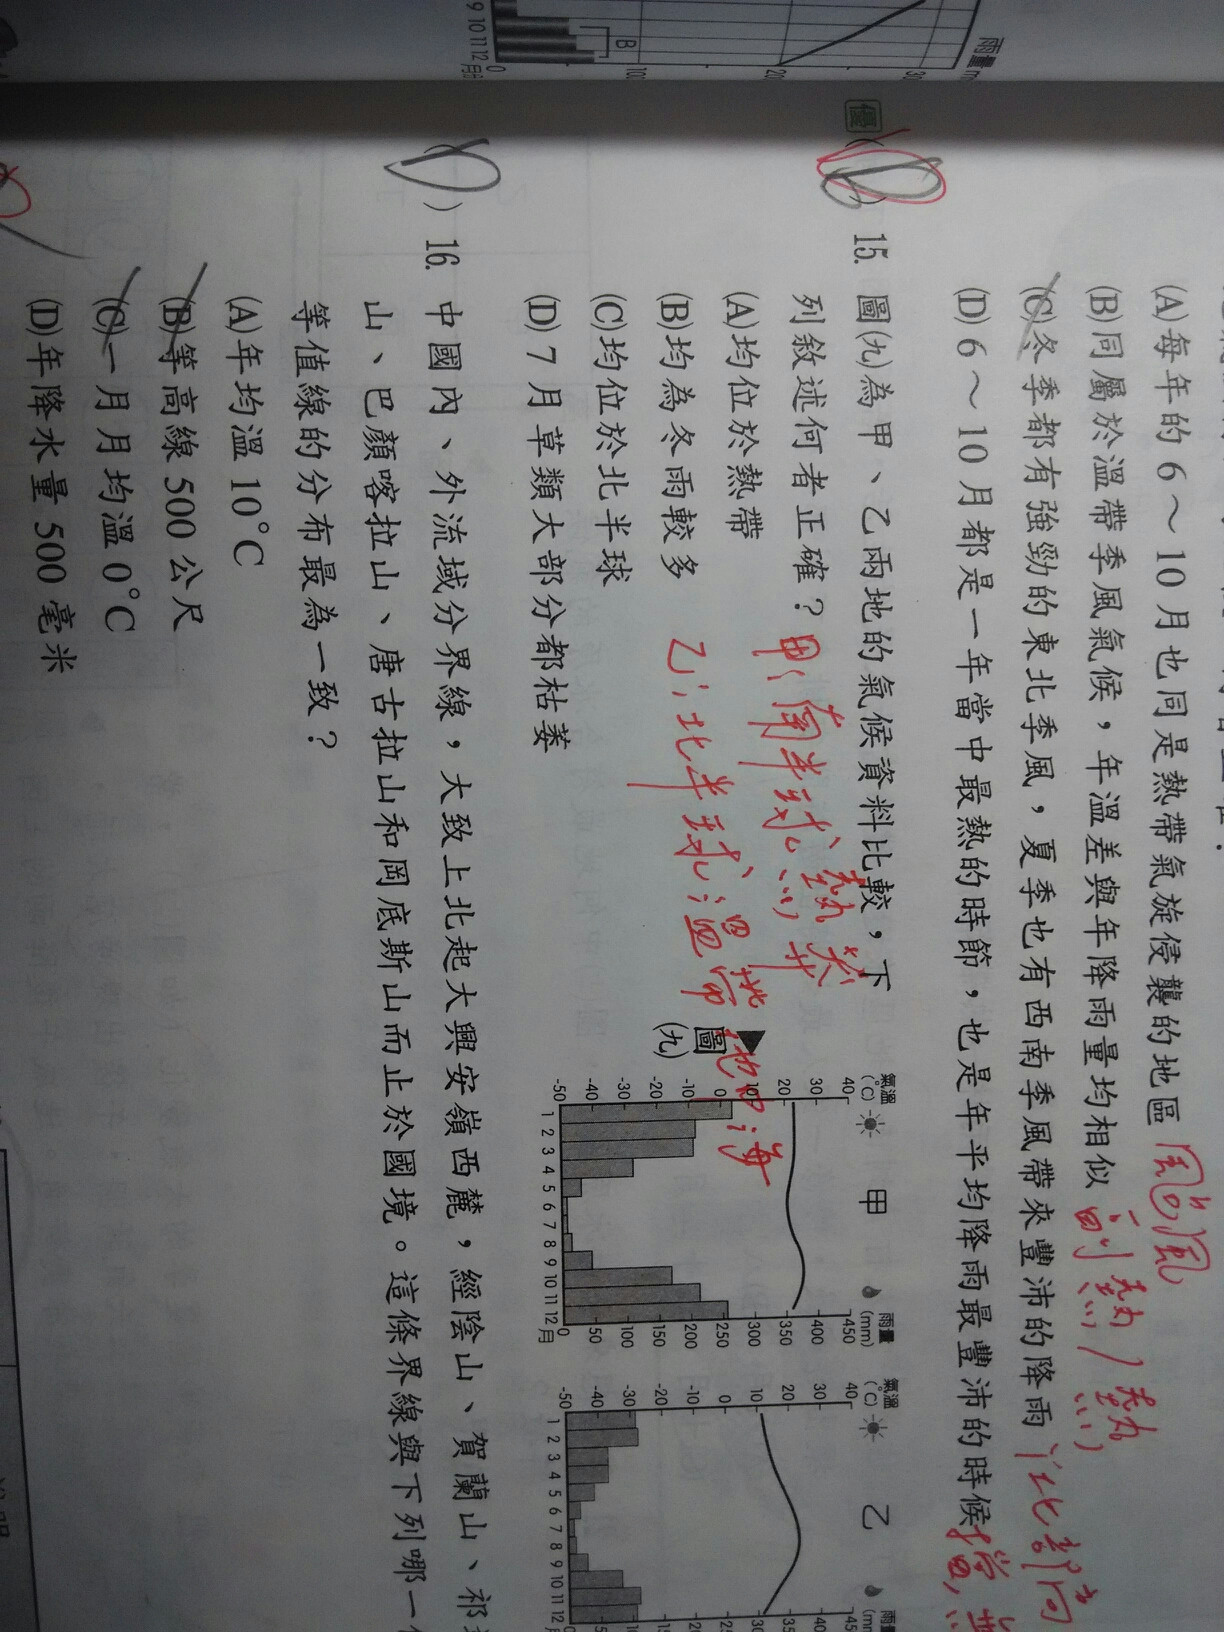 9 10 11 12 月份
B
0 100 200 300
雨量
(A)每年的 6～10 月也同是熱帶氣旋侵襲的地區 颱風
(B)同屬於溫帶季風氣候，年溫差與年降雨量均相似 副熱/熱
(C)冬季都有強勁的東北季風，夏季也有西南季風帶來豐沛的降雨
(D)6～10 月都是一年當中最熱的時節，也是年平均降雨最豐沛的時候
優
( D ) 15. 圖(九)為甲、乙兩地的氣候資料比較，下
列敘述何者正確？
(A)均位於熱帶
(B)均為冬雨較多
(C)均位於北半球
(D)7 月草類大部分都枯萎
甲：南半球、熱莽
乙：北半球、溫帶地中海
▲圖(九)
氣溫(℃) 甲 雨量(mm)
40 30 20 10 0 -10 -20 -30 -40 -50
450 400 350 300 250 200 150 100 50 0
1 2 3 4 5 6 7 8 9 10 11 12 月
氣溫(℃) 乙 雨量
40 30 20 10 0 -10 -20 -30 -40 -50
1 2 3 4 5 6 7 8 9 10 11 12
( D ) 16. 中國內、外流域分界線，大致上北起大興安嶺西麓，經陰山、賀蘭山、祁
山、巴顏喀拉山、唐古拉山和岡底斯山而止於國境。這條界線與下列哪一
等值線的分布最為一致？
(A)年均溫 10°C
(B)等高線 500 公尺
(C)一月月均溫 0°C
(D)年降水量 500 毫米